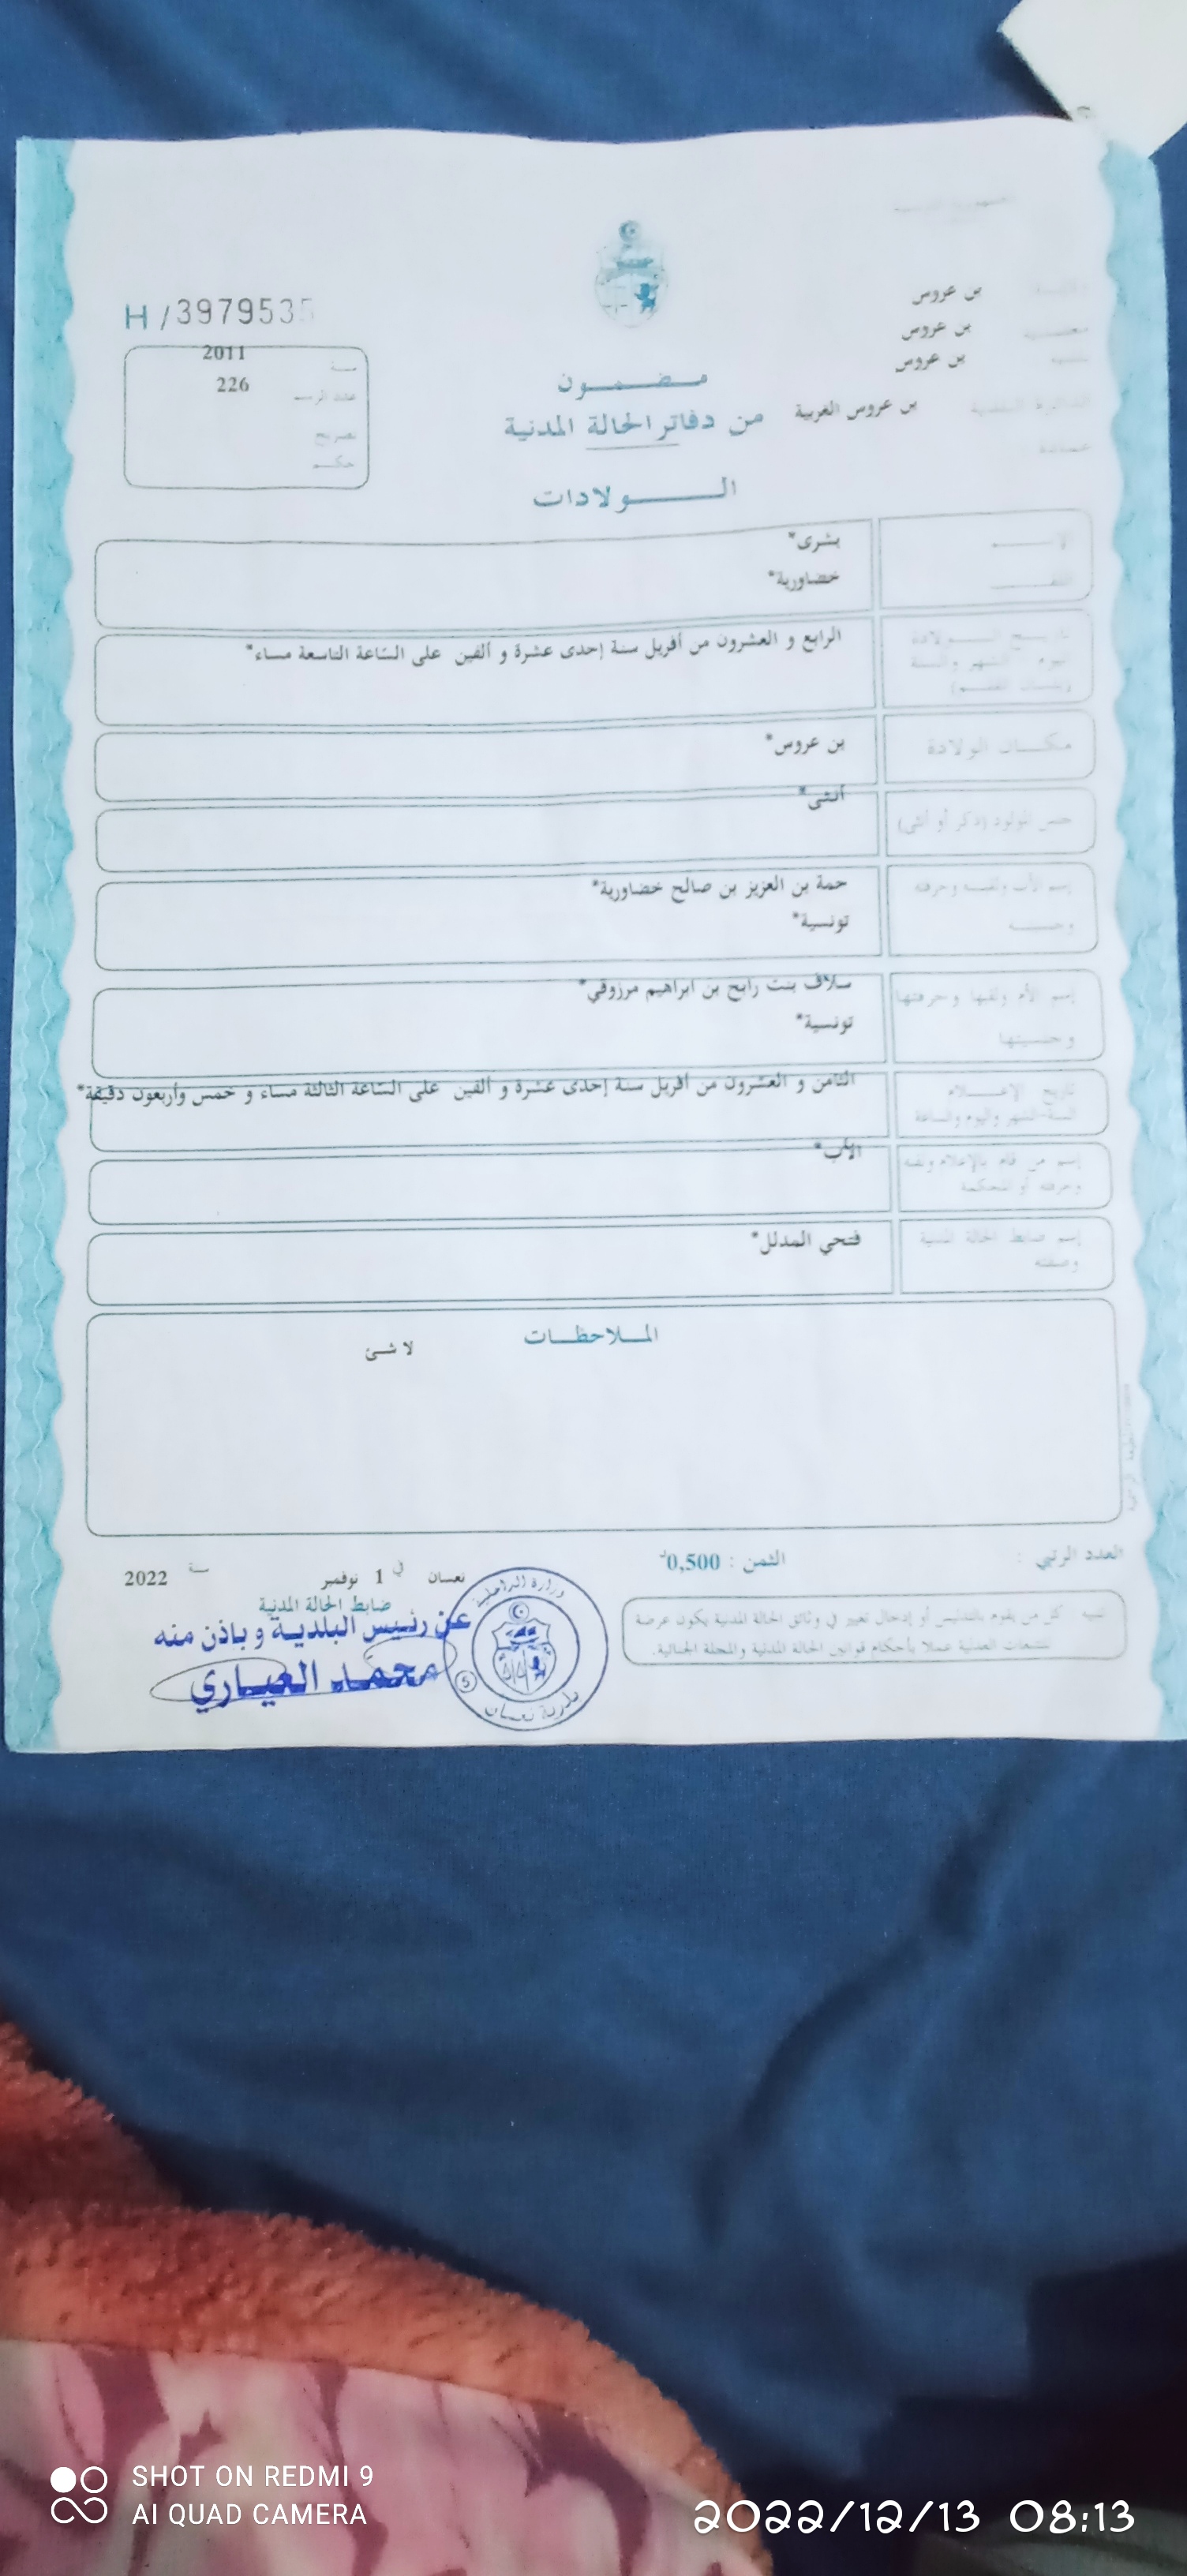 الجمهورية التونسية
H/3979535
بن عروس
معتمدية بن عروس
بن عروس
الدائرة البلدية بن عروس الغربية
عمادة
سنة 2011
عدد الرسم 226
تصريح
حكم
مضمون
من دفاتر الحالة المدنية
الولادات
الاسم بشرى*
اللقب خضاورية*
تاريخ الولادة الرابع و العشرون من أفريل سنة إحدى عشرة و ألفين على الساعة التاسعة مساء*
اليوم الشهر والسنة
مكان الولادة بن عروس*
جنس المولود (ذكر أو أنثى) أنثى*
إسم الأب ولقبه وحرفته حمة بن العزيز بن صالح خضاورية*
وجنسيته تونسية*
إسم الأم ولقبها وحرفتها سلاف بنت رابح بن ابراهيم مرزوقي*
وجنسيتها تونسية*
تاريخ الإعلام الثامن و العشرون من أفريل سنة إحدى عشرة و ألفين على الساعة الثالثة مساء و خمس وأربعون دقيقة*
السنة-الشهر واليوم والساعة
إسم من قام بالإعلام ولقبه الأب*
وحرفته أو المحكمة
إسم ضابط الحالة المدنية فتحي المدلل*
وصفته
الملاحظات
لا شئ
العدد الرتبي :
الثمن : 0,500د
نعسان في 1 نوفمبر سنة 2022
ضابط الحالة المدنية
عن رئيس البلدية وباذن منه
محمد العياري
وزارة الداخلية
بلدية نعسان
5
تنبيه كل من يقوم بالتدليس أو إدخال تغيير في وثائق الحالة المدنية يكون عرضة
للتتبعات العدلية عملا بأحكام قوانين الحالة المدنية والمجلة الجنائية.
SHOT ON REDMI 9
AI QUAD CAMERA
2022/12/13 08:13